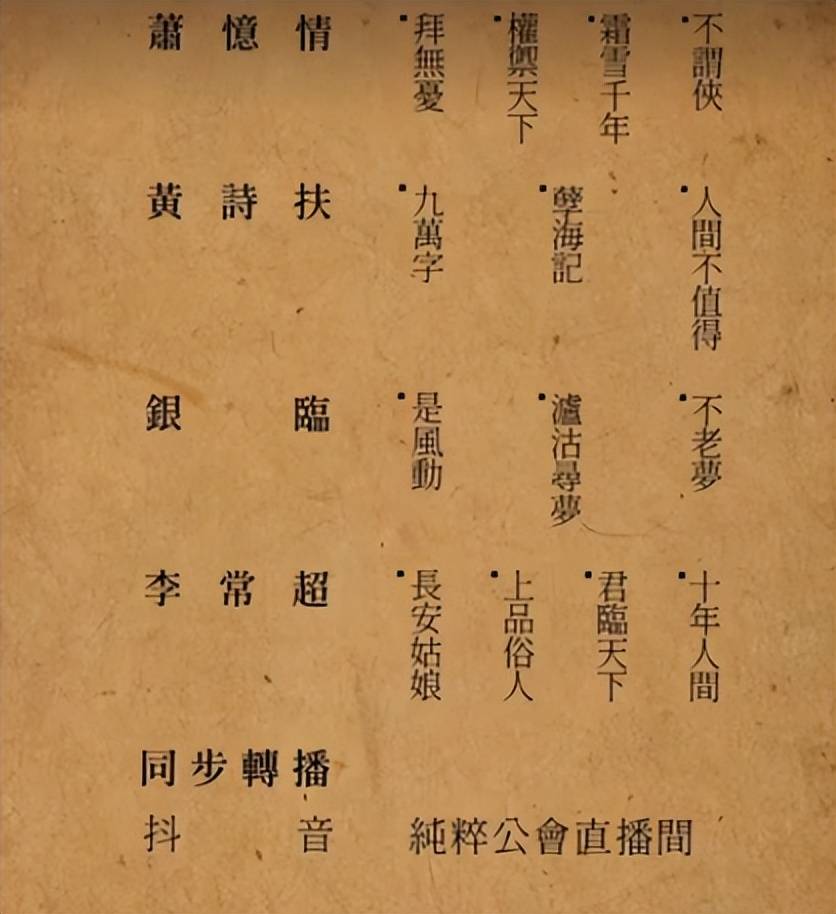 蕭憶情
拜無憂
權禦天下
霜雪千年
不謂俠
黃詩扶
九萬字
孽海記
人間不值得
銀臨
是風動
瀘沽尋夢
不老夢
李常超
長安姑娘
上品俗人
君臨天下
十年人間
同步轉播
抖音
純粹公會直播間